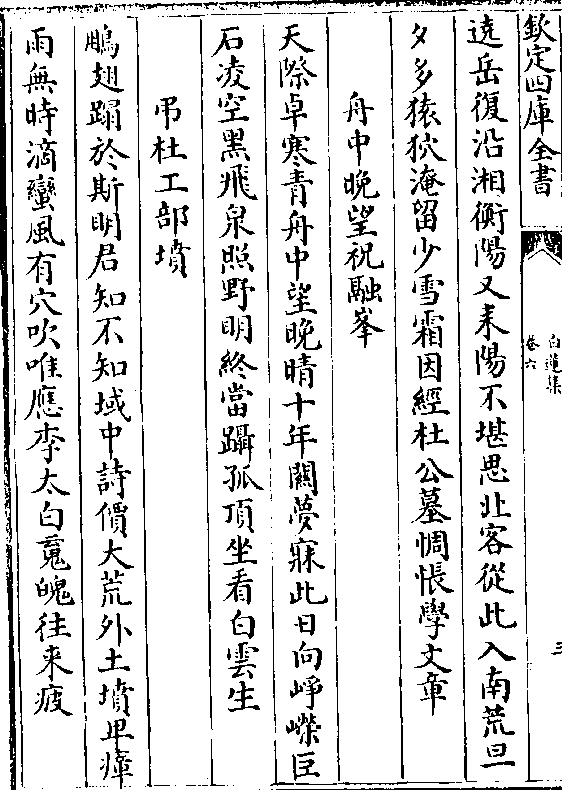 欽定四庫全書
白蓮集
卷六
三
遠岳復沿湘衡陽又耒陽不堪思北客從此入南荒旦
夕多猿狖淹留少雪霜因經杜公墓惆悵學文章
舟中晚望祝融峯
天際卓寒青舟中望晚晴十年關夢寐此日向崢嶸巨
石凌空黑飛泉照野明終當躡孤頂坐看白雲生
弔杜工部墳
鵬翅蹋於斯明君知不知域中詩價大荒外土墳卑瘴
雨無時滴蠻風有穴吹唯應李太白䰟魄往来疲